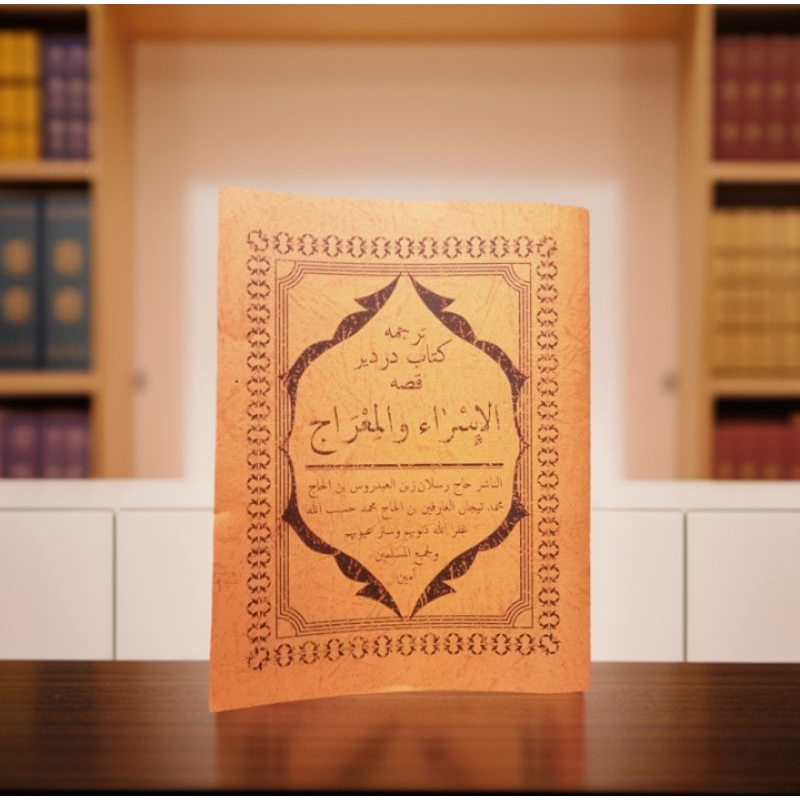 ترجمه
كتاب دردير
قصه
الإِسْرَاء والمِعْرَاج
الناشر حاج رسلان زين العيدروس بن الحاج
محمد تيجان العارفين بن الحاج محمد حسب الله
غفر الله ذنوبهم وستر عيوبهم
ولجميع المسلمين
آمين